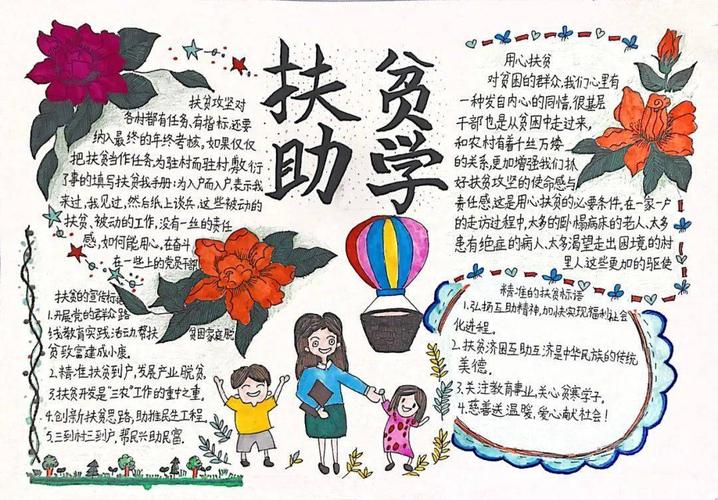 扶贫
助学
扶贫攻坚对
各村都有任务、有指标,还要
纳入最终的年终考核,如果仅仅
把扶贫当作任务为驻村而驻村敷衍
了事的填写扶贫我手册:为入户而入户表示我
来过,我见过,然后纸上谈兵,这些被动的
扶贫、被动的工作,没有一丝的责任
感,如何能用心,在奋斗
在一些上的党员干部
扶贫的宣传标语
1.开展党的群众路
线教育实践活动,帮扶 贫困家庭脱
贫致富建成小康。
2.精准扶贫到户,发展产业脱贫。
3.扶贫开发是“三农”工作的重中之重。
4.创新扶贫思路,助推民生工程。
5.三到村三到户,帮民兴助民富。
用心扶贫
对贫困的群众,我们心里有
一种发自内心的同情,很基层
干部也是从贫困中走过来,
和农村有着千丝万缕
的关系,更加增强我们抓
好扶贫攻坚的使命感与
责任感,这是用心扶贫的必要条件,在一家一户
的走访过程中,太多的卧榻病床的老人,太多
患有绝症的病人、太多渴望走出困境的村
里人这些更加的驱使
精准的扶贫标语
1.弘扬互助精神,加快实现福利社会
化进程。
2.扶贫济困互助互济是中华民族的传统
美德。
3.关注教育事业,关心贫寒学子。
4.慈善送温暖,爱心献社会!